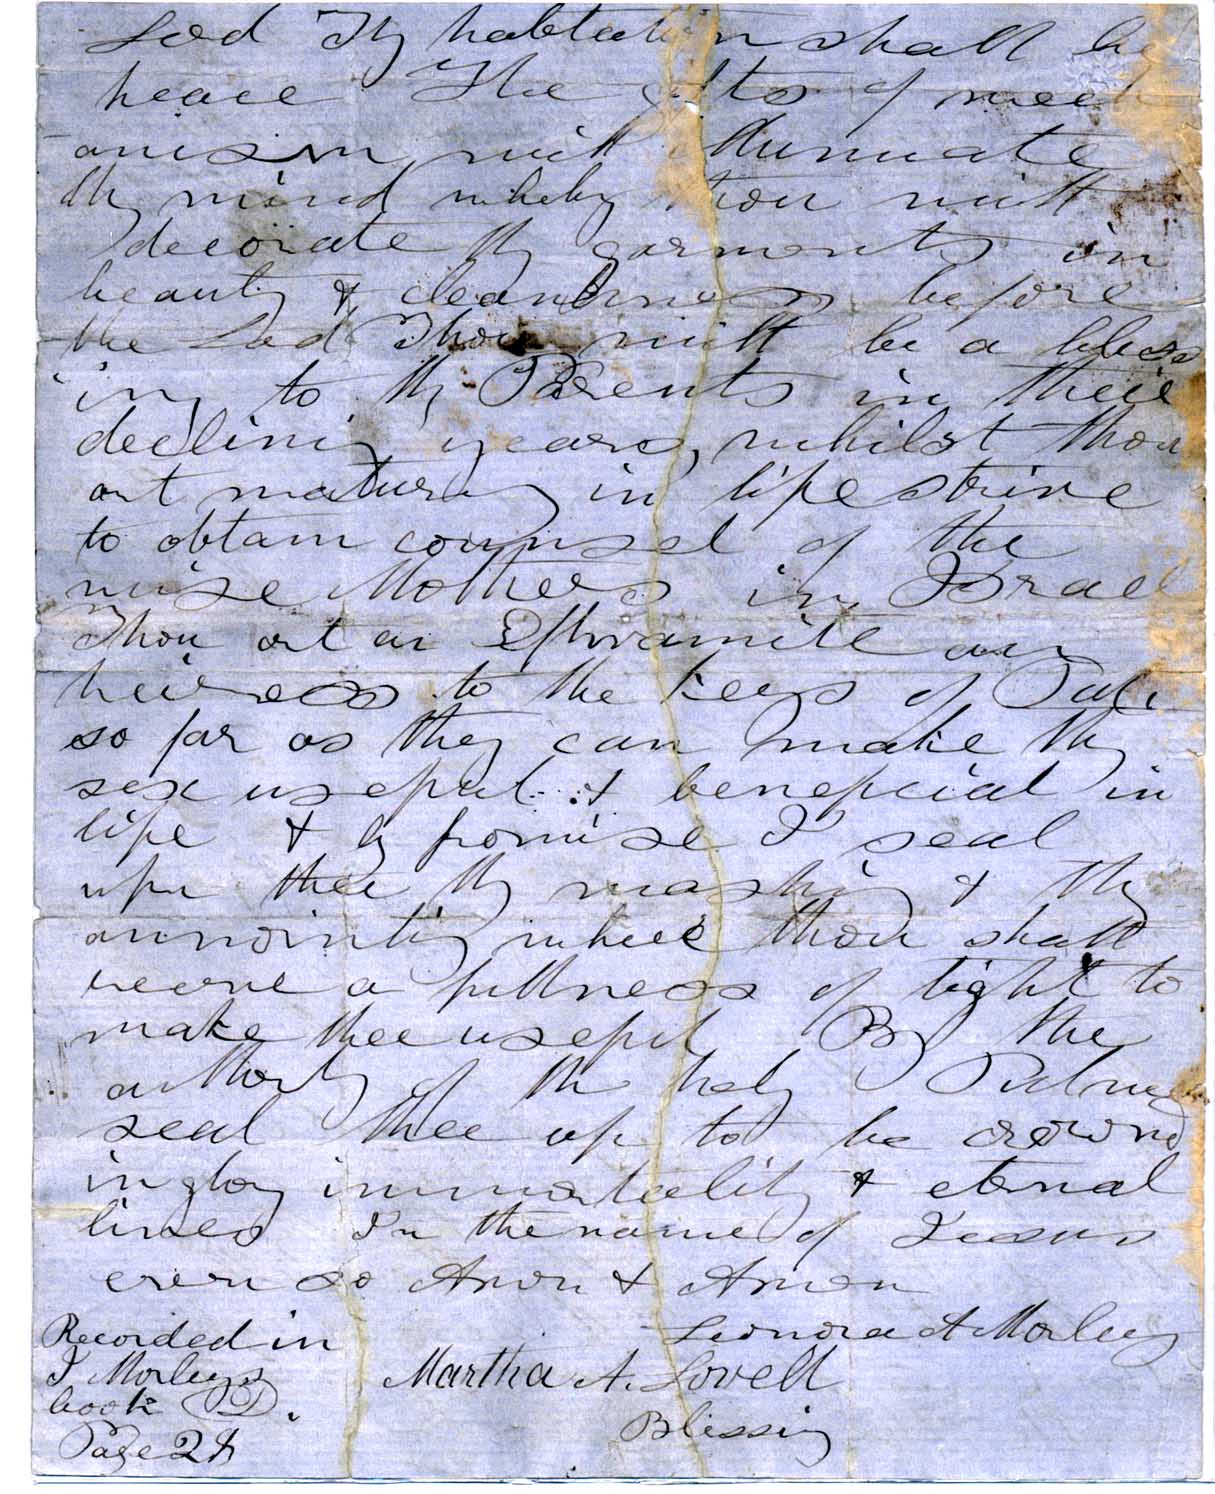 Lod Thy habitation shall be
peace The gifts of mech
anism will illuminate
thy mind wheby thou wilt
decorate thy garments in
beauty & cleanliness before
the Lod Thou wilt be a bless
ing to thy Parents in their
declining years, whilst thou
art maturing in life strive
to obtain counsel of the
wise Mothers in Israel
Thou art an Ephramite an
heiress to the keys of
so far as they can make thy
sex useful & beneficial in
life & by promise I seal
upon thee thy washing & thy
annointing where thou shalt
receive a fullness of light to
make thee useful By the
authority of the holy
seal thee up to be crownd
in glory immortality & eternal
lives In the name of Jesus
even so Amen & Amen
Leonora A Morley
Recorded in
I Morleys
book D.
Page 28
Martha A. Lovell
Blessing